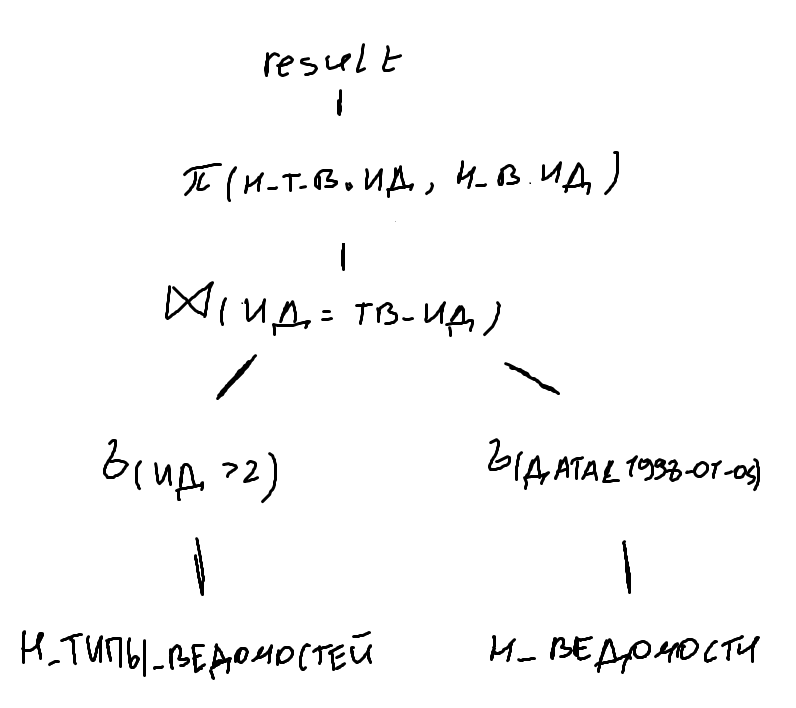 result
π(Н_Т_В.ИД, Н_В.ИД)
⋈(ИД = ТВ_ИД)
σ(ИД >2) σ(ДАТА< 1998-01-05)
Н_ТИПЫ_ВЕДОМОСТЕЙ Н_ВЕДОМОСТИ